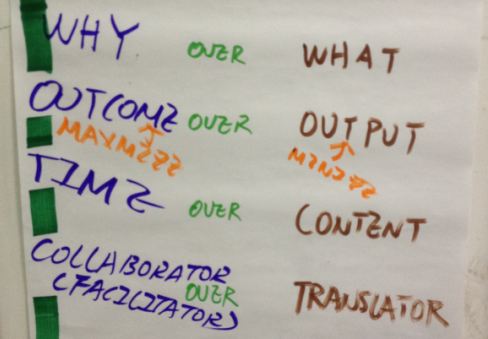 WHY OVER WHAT
OUTCOME OVER OUTPUT
MAXMIZE MINIZE
TIME OVER CONTENT
COLLABORATOR
(FACILITATOR) OVER TRANSLATOR